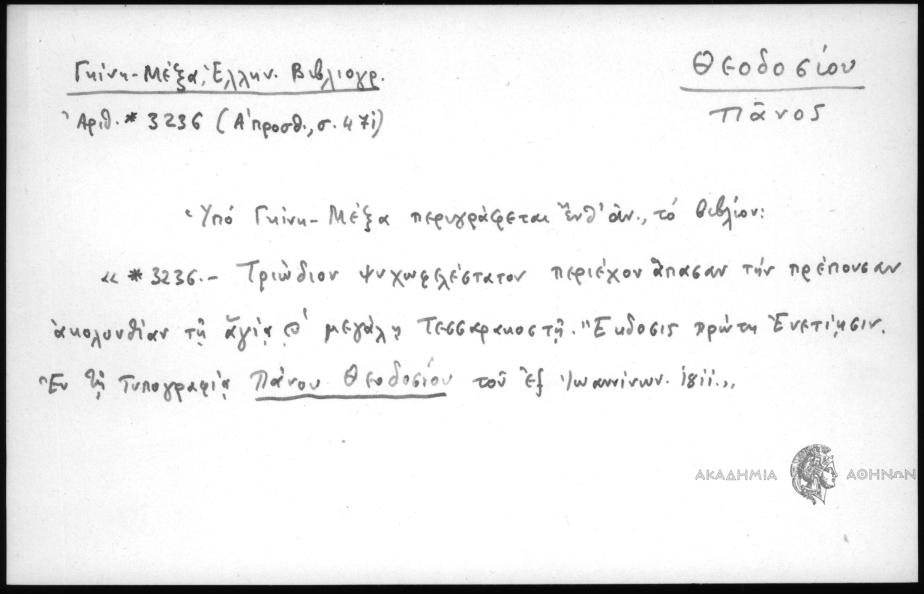 Γκίνη-Μέξα, Ἑλλην. Βιβλιογρ.
Ἀριθ. * 3236 (Ἀπροσθ., σ. 471)
Θεοδοσίου
Πᾶνος
Ὑπό Γκίνη-Μέξα περιγράφεται ἔνθ' ἀν., τό βιβλίον:
« * 3236.- Τριῴδιον ψυχωφελέστατον περιέχον ἅπασαν τήν πρέπουσαν
ἀκολουθίαν τῇ ἁγίᾳ μεγάλῃ Τεσσαρακοστῇ. Ἔκδοσις πρώτη Ἐνετίῃσιν.
Ἐν τῇ Τυπογραφίᾳ Πάνου Θεοδοσίου τοῦ ἐξ Ἰωαννίνων. 1811.»
ΑΚΑΔΗΜΙΑ ΑΘΗΝΩΝ